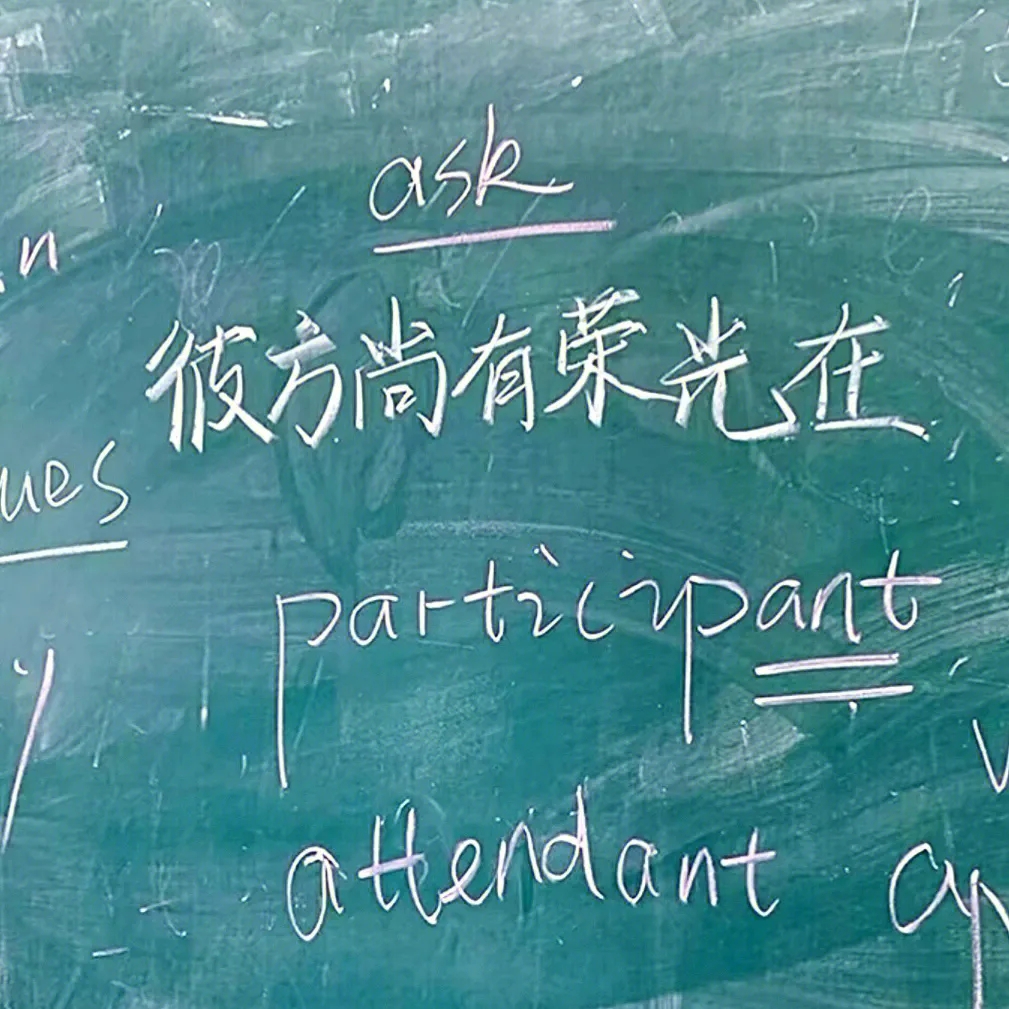 ask
n
彼方尚有荣光在
ues
participant
y
attendant ap